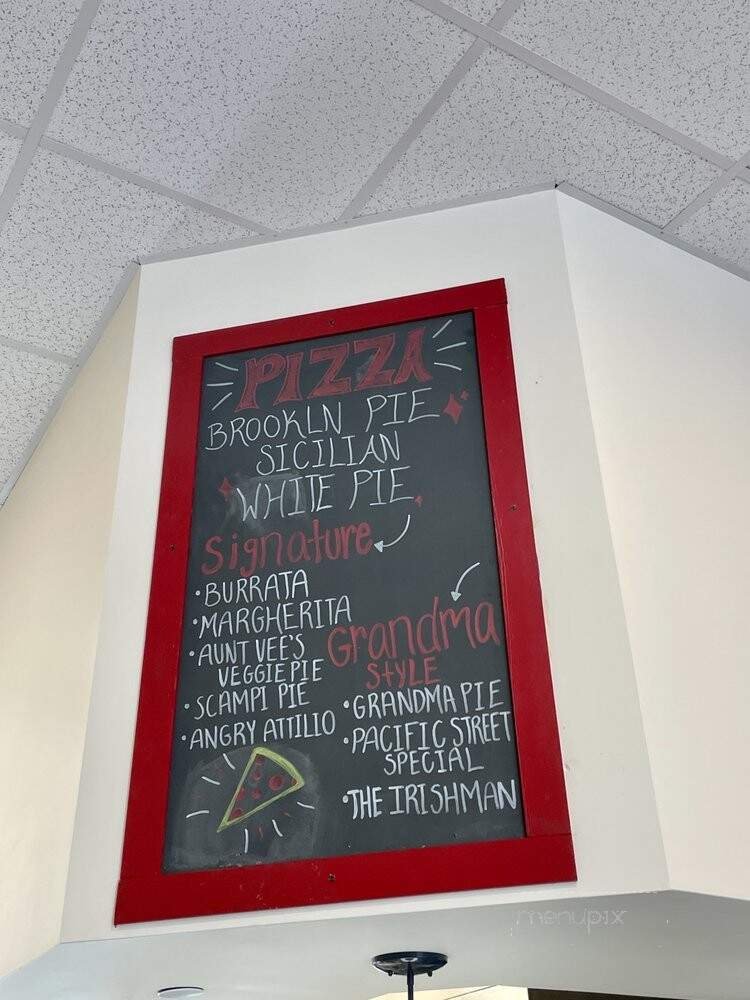 PIZZA
BROOKLN PIE
SICILIAN
WHITE PIE
Signature
• BURRATA
• MARGHERITA
• AUNT VEE'S
VEGGIE PIE
• SCAMPI PIE
• ANGRY ATTILIO
Grandma
STYLE
• GRANDMA PIE
• PACIFIC STREET
SPECIAL
• THE IRISHMAN
menupix